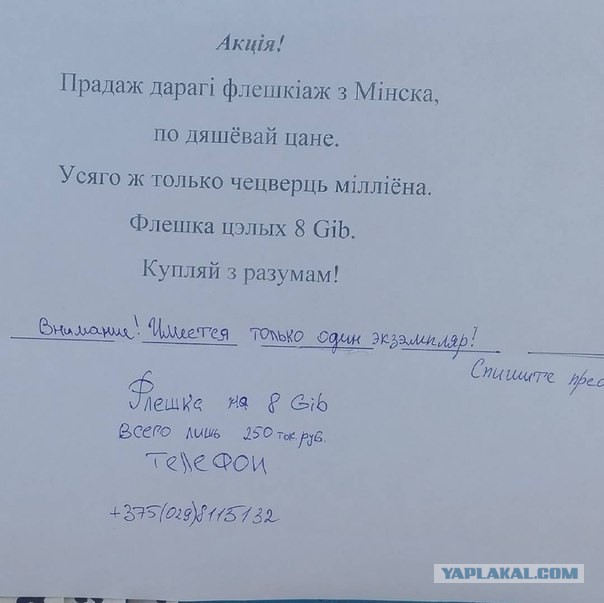 Акція!
Прадаж дарагі флешкіаж з Мінска,
по дяшёвай цане.
Усяго ж только чецверць мілліёна.
Флешка цэлых 8 Gib.
Купляй з разумам!
Внимание! Имеется только один экземпляр!
Спишите
Флешка на 8 Gib
Всего лишь 250 руб.
Телефон
+375(029)8115132
YAPLAKAL.COM